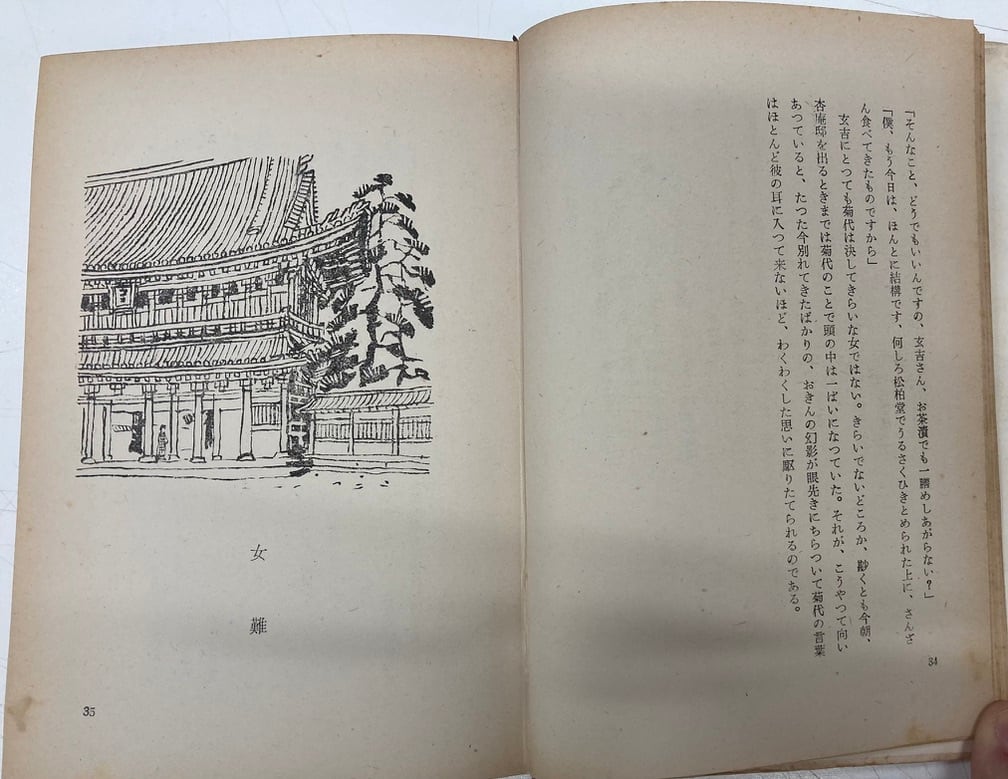 「そんなこと、どうでもいいんですの、玄吉さん、お茶漬でも一膳めしあがらない？」
「僕、もう今日は、ほんとに結構です、何しろ松柏堂でうるさくひきとめられた上に、さんざ
ん食べてきたものですから」
玄吉にとつても菊代は決してきらいな女ではない。きらいでないどころか、尠くとも今朝、
杏庵邸を出るときまでは菊代のことで頭の中は一ぱいになつていた。それが、こうやつて向い
あつていると、たつた今別れてきたばかりの、おきんの幻影が眼先きにちらついて菊代の言葉
はほとんど彼の耳に入つて来ないほど、わくわくした思いに駆りたてられるのである。
34
女難
35